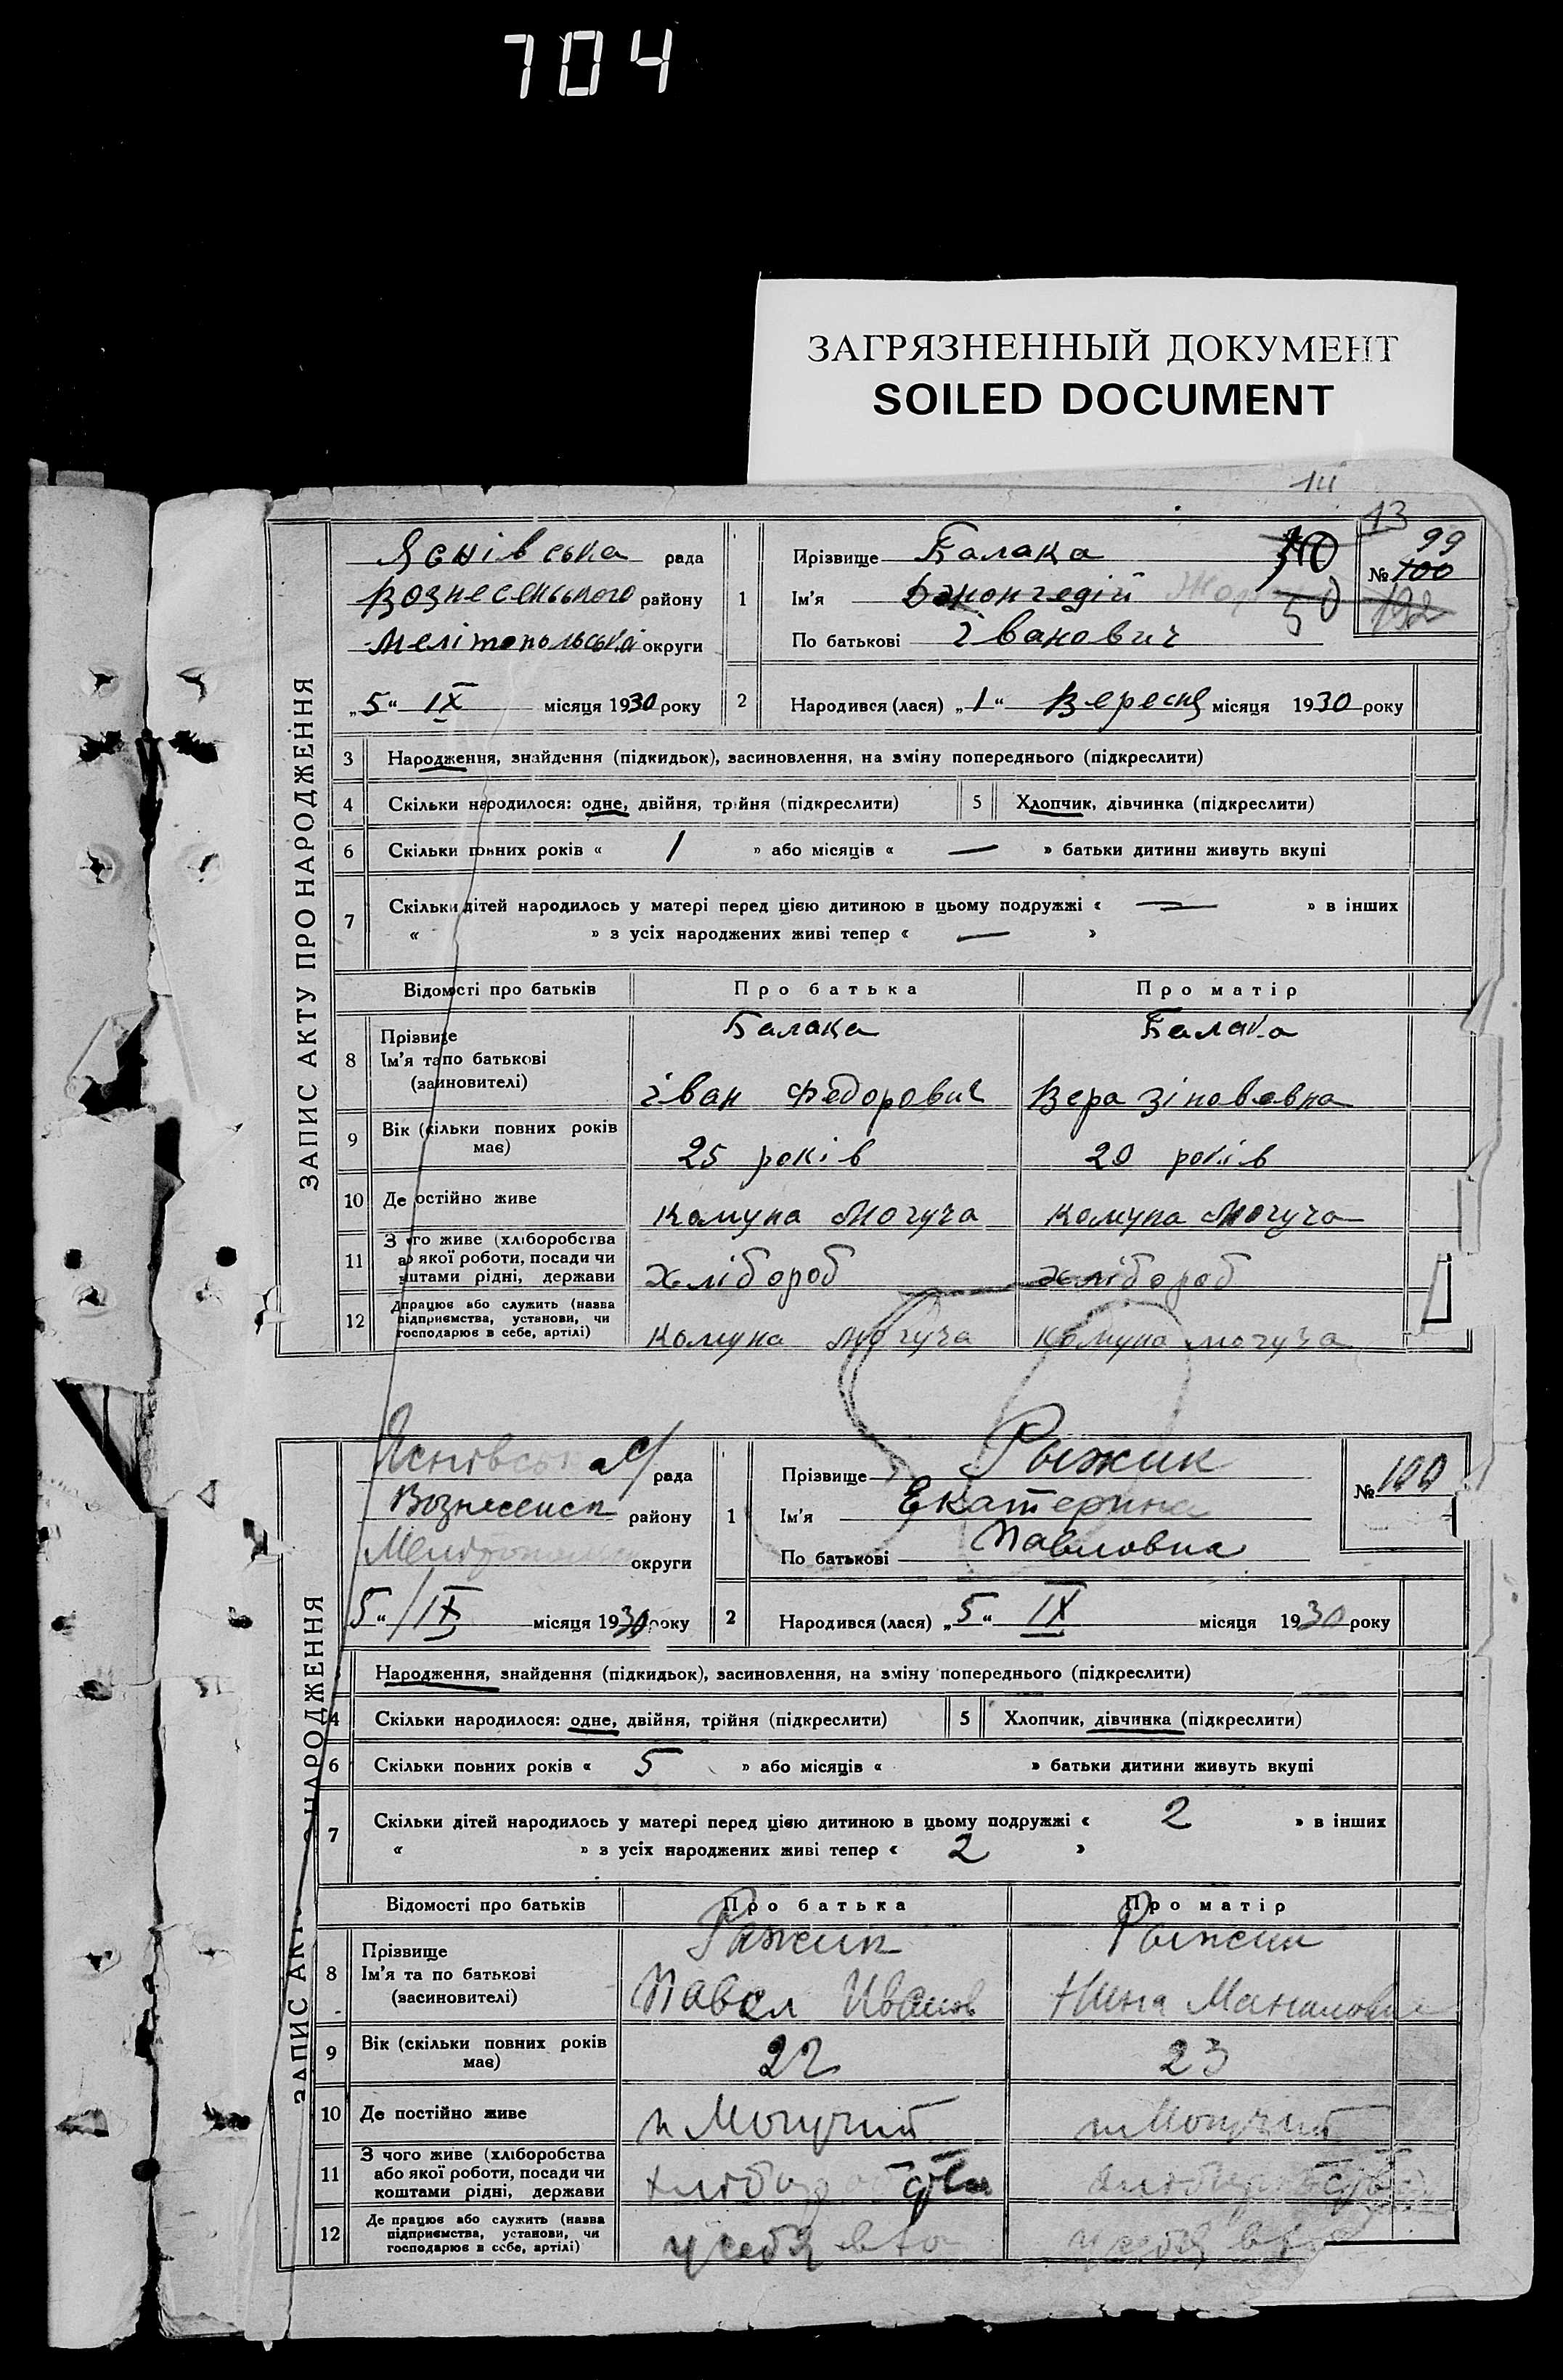 704
ЗАГРЯЗНЕННЫЙ ДОКУМЕНТ
SOILED DOCUMENT
13
ЗАПИС АКТУ ПРО НАРОДЖЕННЯ
Яснівська рада
Вознесенського району
Мелітопольська округи
„5“ IX місяця 1930 року
1
Прізвище Балака
Ім'я
По батькові Іванович
№ 100
99
132
50
2 Народився (лася) „1“ Вересня місяця 1930 року
3 Народження, знайдення (підкидьок), засиновлення, на зміну попереднього (підкреслити)
4 Скільки народилося: одне, двійня, трійня (підкреслити) 5 Хлопчик, дівчинка (підкреслити)
6 Скільки повних років « 1 » або місяців « — » батьки дитини живуть вкупі
7 Скільки дітей народилось у матері перед цією дитиною в цьому подружжі « — » в інших
« » з усіх народжених живі тепер « — »
Відомості про батьків Про батька Про матір
8 Прізвище Балака Балака
Ім'я та по батькові
(засиновителі) Іван Федорович Вера Зіновьевна
9 Вік (скільки повних років має) 25 років 20 років
10 Де постійно живе Комуна Могуча Комуна Могуча
11 З чого живе (хліборобства
або якої роботи, посади чи
коштами рідні, держави хлібороб хлібороб
12 Де працює або служить (назва
підприємства, установи, чи
господарює в себе, артілі) Комуна Могуча Комуна могуча
ЗАПИС АКТ НАРОДЖЕННЯ
Яснівська с/рада
Вознесенск району
округи
5“ IX місяця 1930 року
1
Прізвище Рыжик
Ім'я Екатерина
По батькові Павловна
№ 100
2 Народився (лася) „5“ IX місяця 1930 року
Народження, знайдення (підкидьок), засиновлення, на зміну попереднього (підкреслити)
4 Скільки народилося: одне, двійня, трійня (підкреслити) 5 Хлопчик, дівчинка (підкреслити)
6 Скільки повних років « 5 » або місяців « » батьки дитини живуть вкупі
7 Скільки дітей народилось у матері перед цією дитиною в цьому подружжі « 2 » в інших
« » з усіх народжених живі тепер « 2 »
Відомості про батьків Про батька Про матір
8 Прізвище Рыжик Рыжик
Ім'я та по батькові
(засиновителі) Павел Иванов Нина
9 Вік (скільки повних років має) 22 23
10 Де постійно живе п Могучий п Могучий
11 З чого живе (хліборобства
або якої роботи, посади чи
коштами рідні, держави
12 Де працює або служить (назва
підприємства, установи, чи
господарює в себе, артілі) у себя